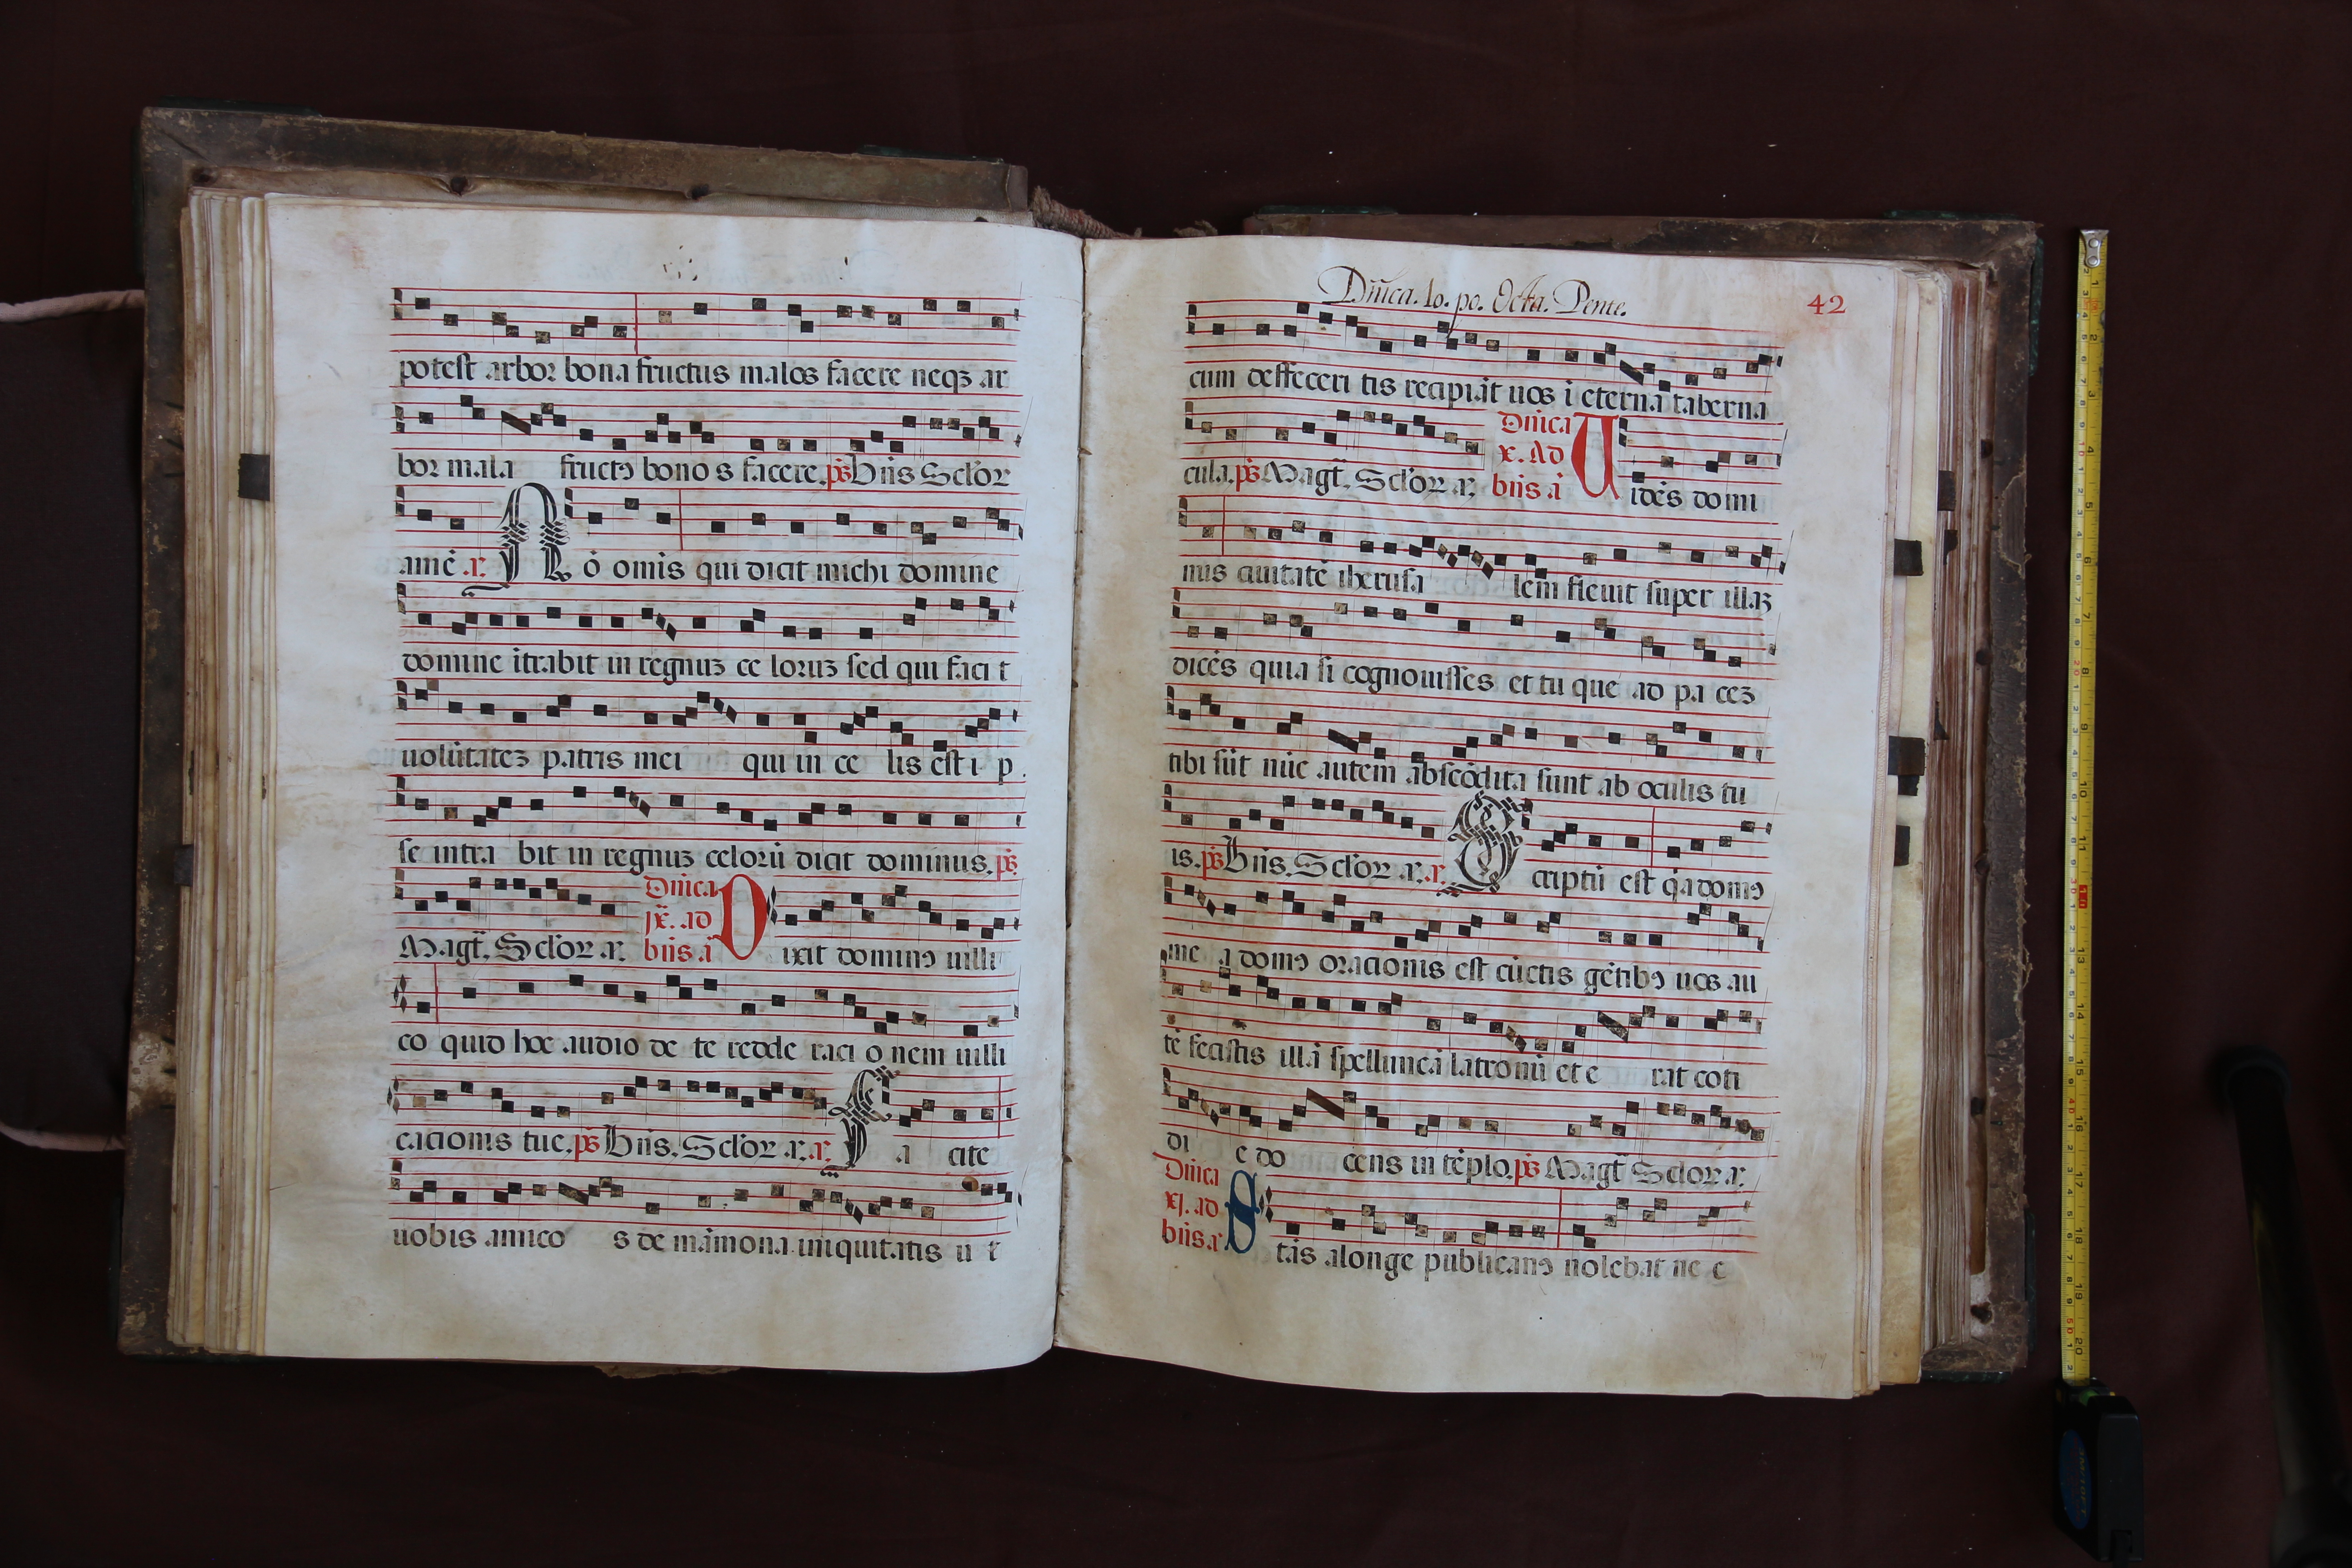 potest arbor bona fructus malos facere neqꝫ ar
bor mala fructꝰ bonos facere. ps Bñs Sclor
amē .r. Nō omīs qui dicit michi domine
domine ītrabit in regnuꝫ celoruꝫ sed qui facit
uolūtateꝫ patris mei qui in celis est ip
se intrabit in regnuꝫ celorū dicit dominus. ps
Magt̄. Sclor .r. Dn̄ica
ix. ad
bn̄s ā Dixit dominꝰ uilli
co quid hoc audio de te redde racionem uilli
cacionis tue. ps Bn̄s. Sclor .r. r. Facite
uobis amicos de māmona iniquitatis ut
Dn̄ica. 10. po. Octa. Pente.
42
cum deffeceritis recipiāt uos ī eterna taberna
cula. ps Magt̄. Sclor .r. Dn̄ica
x. ad
bn̄s ā Uidēs domi
nus ciuitatē iherusalem fleuit super illaꝫ
dicēs quia si cognouisses et tu que ad paceꝫ
tibi sūt nūc autem abscōdita sunt ab oculis tu
is. ps Bn̄s. Sclor .r. r. Scriptū est q̄a domꝰ
mea domꝰ oracionis est cūctis gētibꝰ uos au
tē fecistis illā spelluncā latronū et erat coti
die docens in tēplo. ps Magt̄ Sclor .r.
Dn̄ica
xj. ad
bn̄s ā Stās alonge publicanꝰ nolebat nec